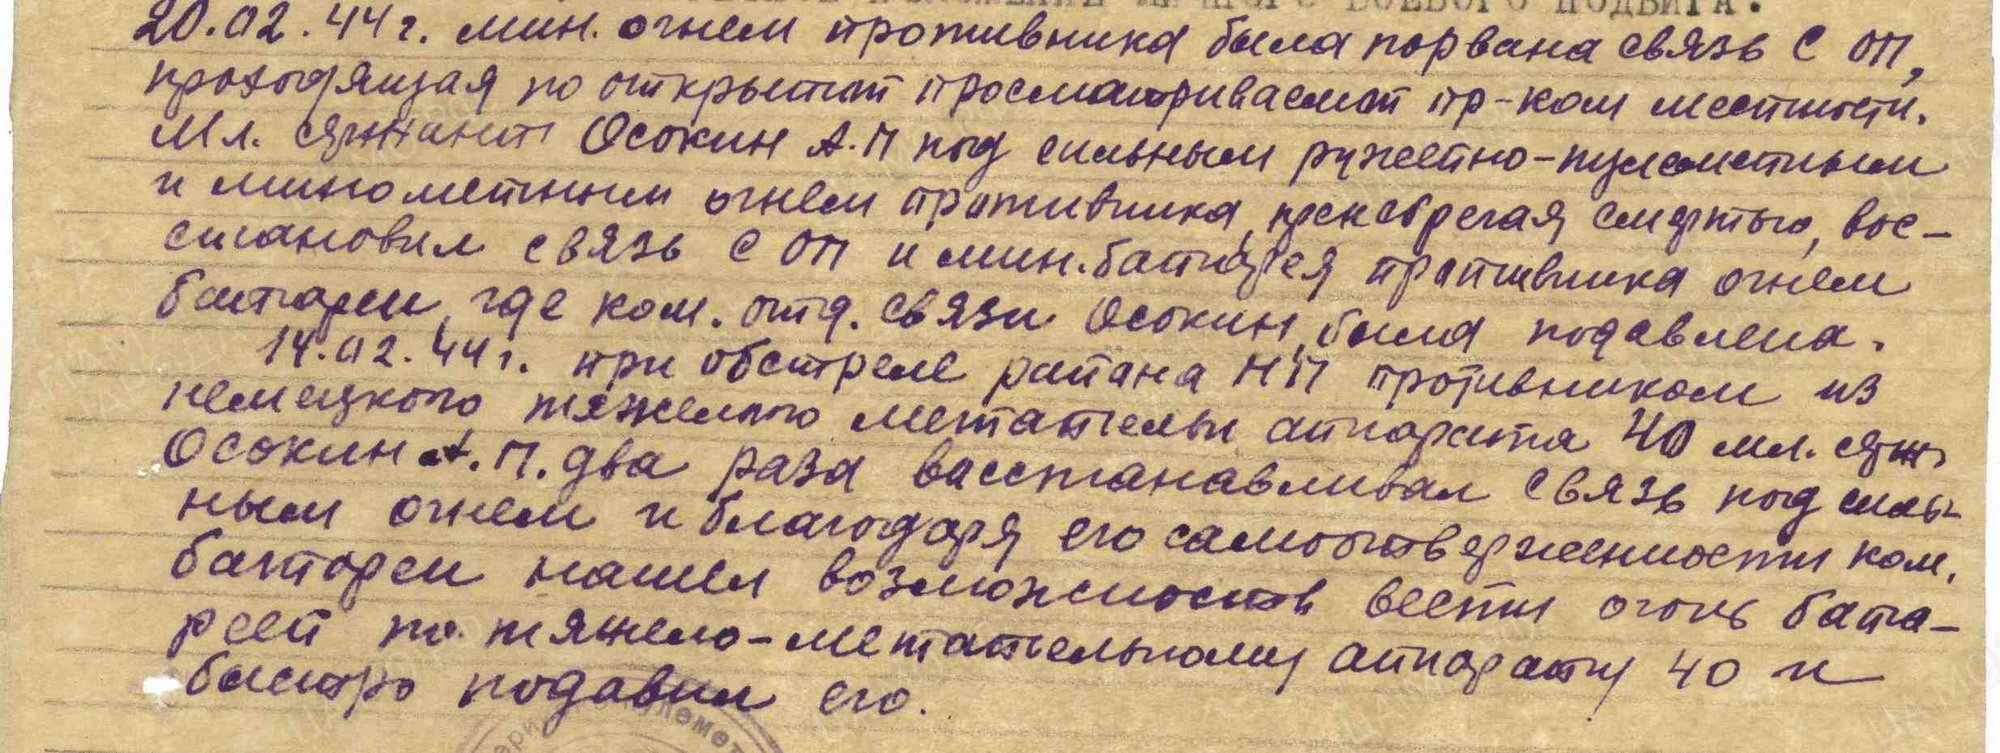 ЛИЧНОГО БОЕВОГО ПОДВИГА.
20.02.44г. мин. огнем противника была порвана связь с ОП,
проходящая по открытой просматриваемой пр-ком местности.
Мл. сержант Осокин А.П под сильным ружейно-пулеметным
и минометным огнем противника, пренебрегая смертью, вос-
становил связь с ОП и мин.батарея противника огнем
батареи, где ком. отд. связи Осокин, была подавлена.
14.02.44г. при обстреле района НП противником из
немецкого тяжелого метательн аппарата 40 мл. серж
Осокин А.П. два раза восстанавливал связь под силь-
ным огнем и благодаря его самоотверженности ком.
батареи нашел возможность вести огонь бата-
реей по тяжело-метательному аппарату 40 и
быстро подавил его.